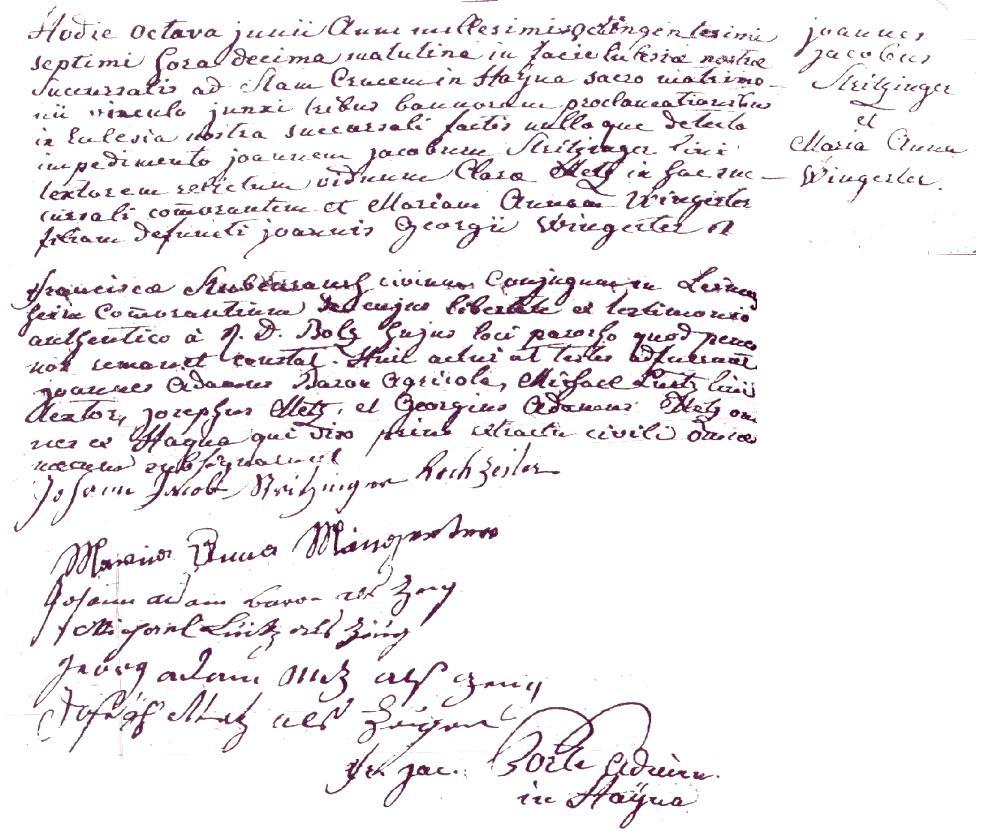 Hodie octava junii Anni millesimi octingentesimi
septimi hora decima matutina in facie Eclesiæ nostræ
succursalis ad Stam Crucem in Haÿna sacro matrimo-
nii vinculo junxi tribus bannorum proclamationibus
in Eclesia nostra succursali factis nulloque detecto
impedimento joannem jacobum Stritzinger lini
textorem relictum viduum Claræ Metz in hac suc-
cursali com̄orantem et Mariam Annam Wingerter
filiam defuncti joannis Georgii Wingerter et
Francisca civium Conjugum in
heim com̄orantium de cujus libertate ex testimonio
authentico à R. D. Bolz hujus loci parocho quod penes
nos remanet constat. Huic actui ut testes adfuerunt
joannes Adamus Baron Agricola, Michael Lintz lini
textor, josephus Metz, et Georgius Adamus Metz om
nes ex Hayna qui viso prius extractu civili
mecum subsignarunt
Johann Jacob Stritzinger Hochzeiter
Maria Anna Wingerterin
Johann adam baron als Zeug
Michael Lintz als Zeug
Georg adam Metz als Zeug
Joseph Metz als Zeugen
fr. jac.
in Haÿna
joannes
jacobus
Stritzinger
et
Maria Anna
Wingerter.